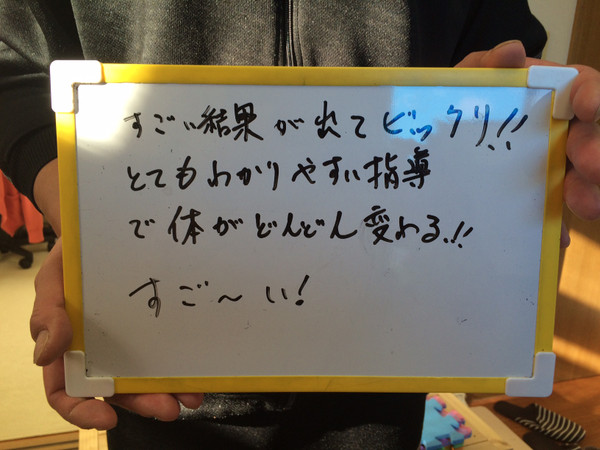 すごい結果が出てビックリ!!
とてもわかりやすい指導
で体がどんどん変わる!!
すご〜い!